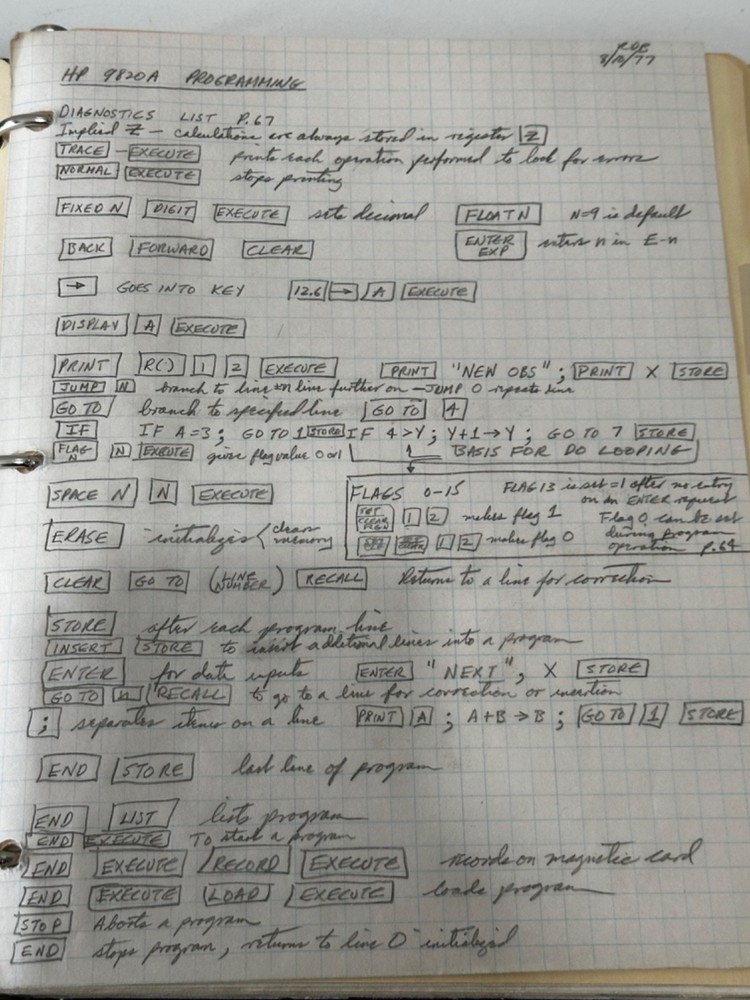 RDB
8/10/77
HP 9820A PROGRAMMING
DIAGNOSTICS LIST P.67
Implied Z — calculations are always stored in register Z
TRACE — EXECUTE prints each operation performed to look for errors
NORMAL EXECUTE stops printing
FIXED N DIGIT EXECUTE sets decimal FLOAT N N=9 is default
BACK FORWARD CLEAR ENTER EXP enters n in E-n
→ GOES INTO KEY 12.6 → A EXECUTE
DISPLAY A EXECUTE
PRINT R() 1 2 EXECUTE PRINT "NEW OBS"; PRINT X STORE
JUMP N branch to line ±n line further on — JUMP 0 repeats line
GO TO branch to specified line GO TO 4
IF IF A=3; GO TO 1 STORE IF 4>Y; Y+1→Y; GO TO 7 STORE
FLAG N N EXECUTE gives flag value 0 or 1 BASIS FOR DO LOOPING
SPACE N N EXECUTE
FLAGS 0-15 FLAG 13 is set =1 after no entry
on an ENTER request
1 2 makes flag 1 Flag 0 can be set
during program
1 2 makes flag 0 operation P.64
ERASE initializes { clears memory
CLEAR GO TO (LINE NUMBER) RECALL Returns to a line for correction
STORE after each program line
INSERT STORE to insert additional lines into a program
ENTER for data inputs ENTER "NEXT", X STORE
GO TO n RECALL to go to a line for correction or insertion
; separates items on a line PRINT A ; A+B→B ; GO TO 1 STORE
END STORE last line of program
END LIST lists program
END EXECUTE To start a program
END EXECUTE RECORD EXECUTE records on magnetic card
END EXECUTE LOAD EXECUTE loads program
STOP Aborts a program
END stops program, returns to line 0 initialized